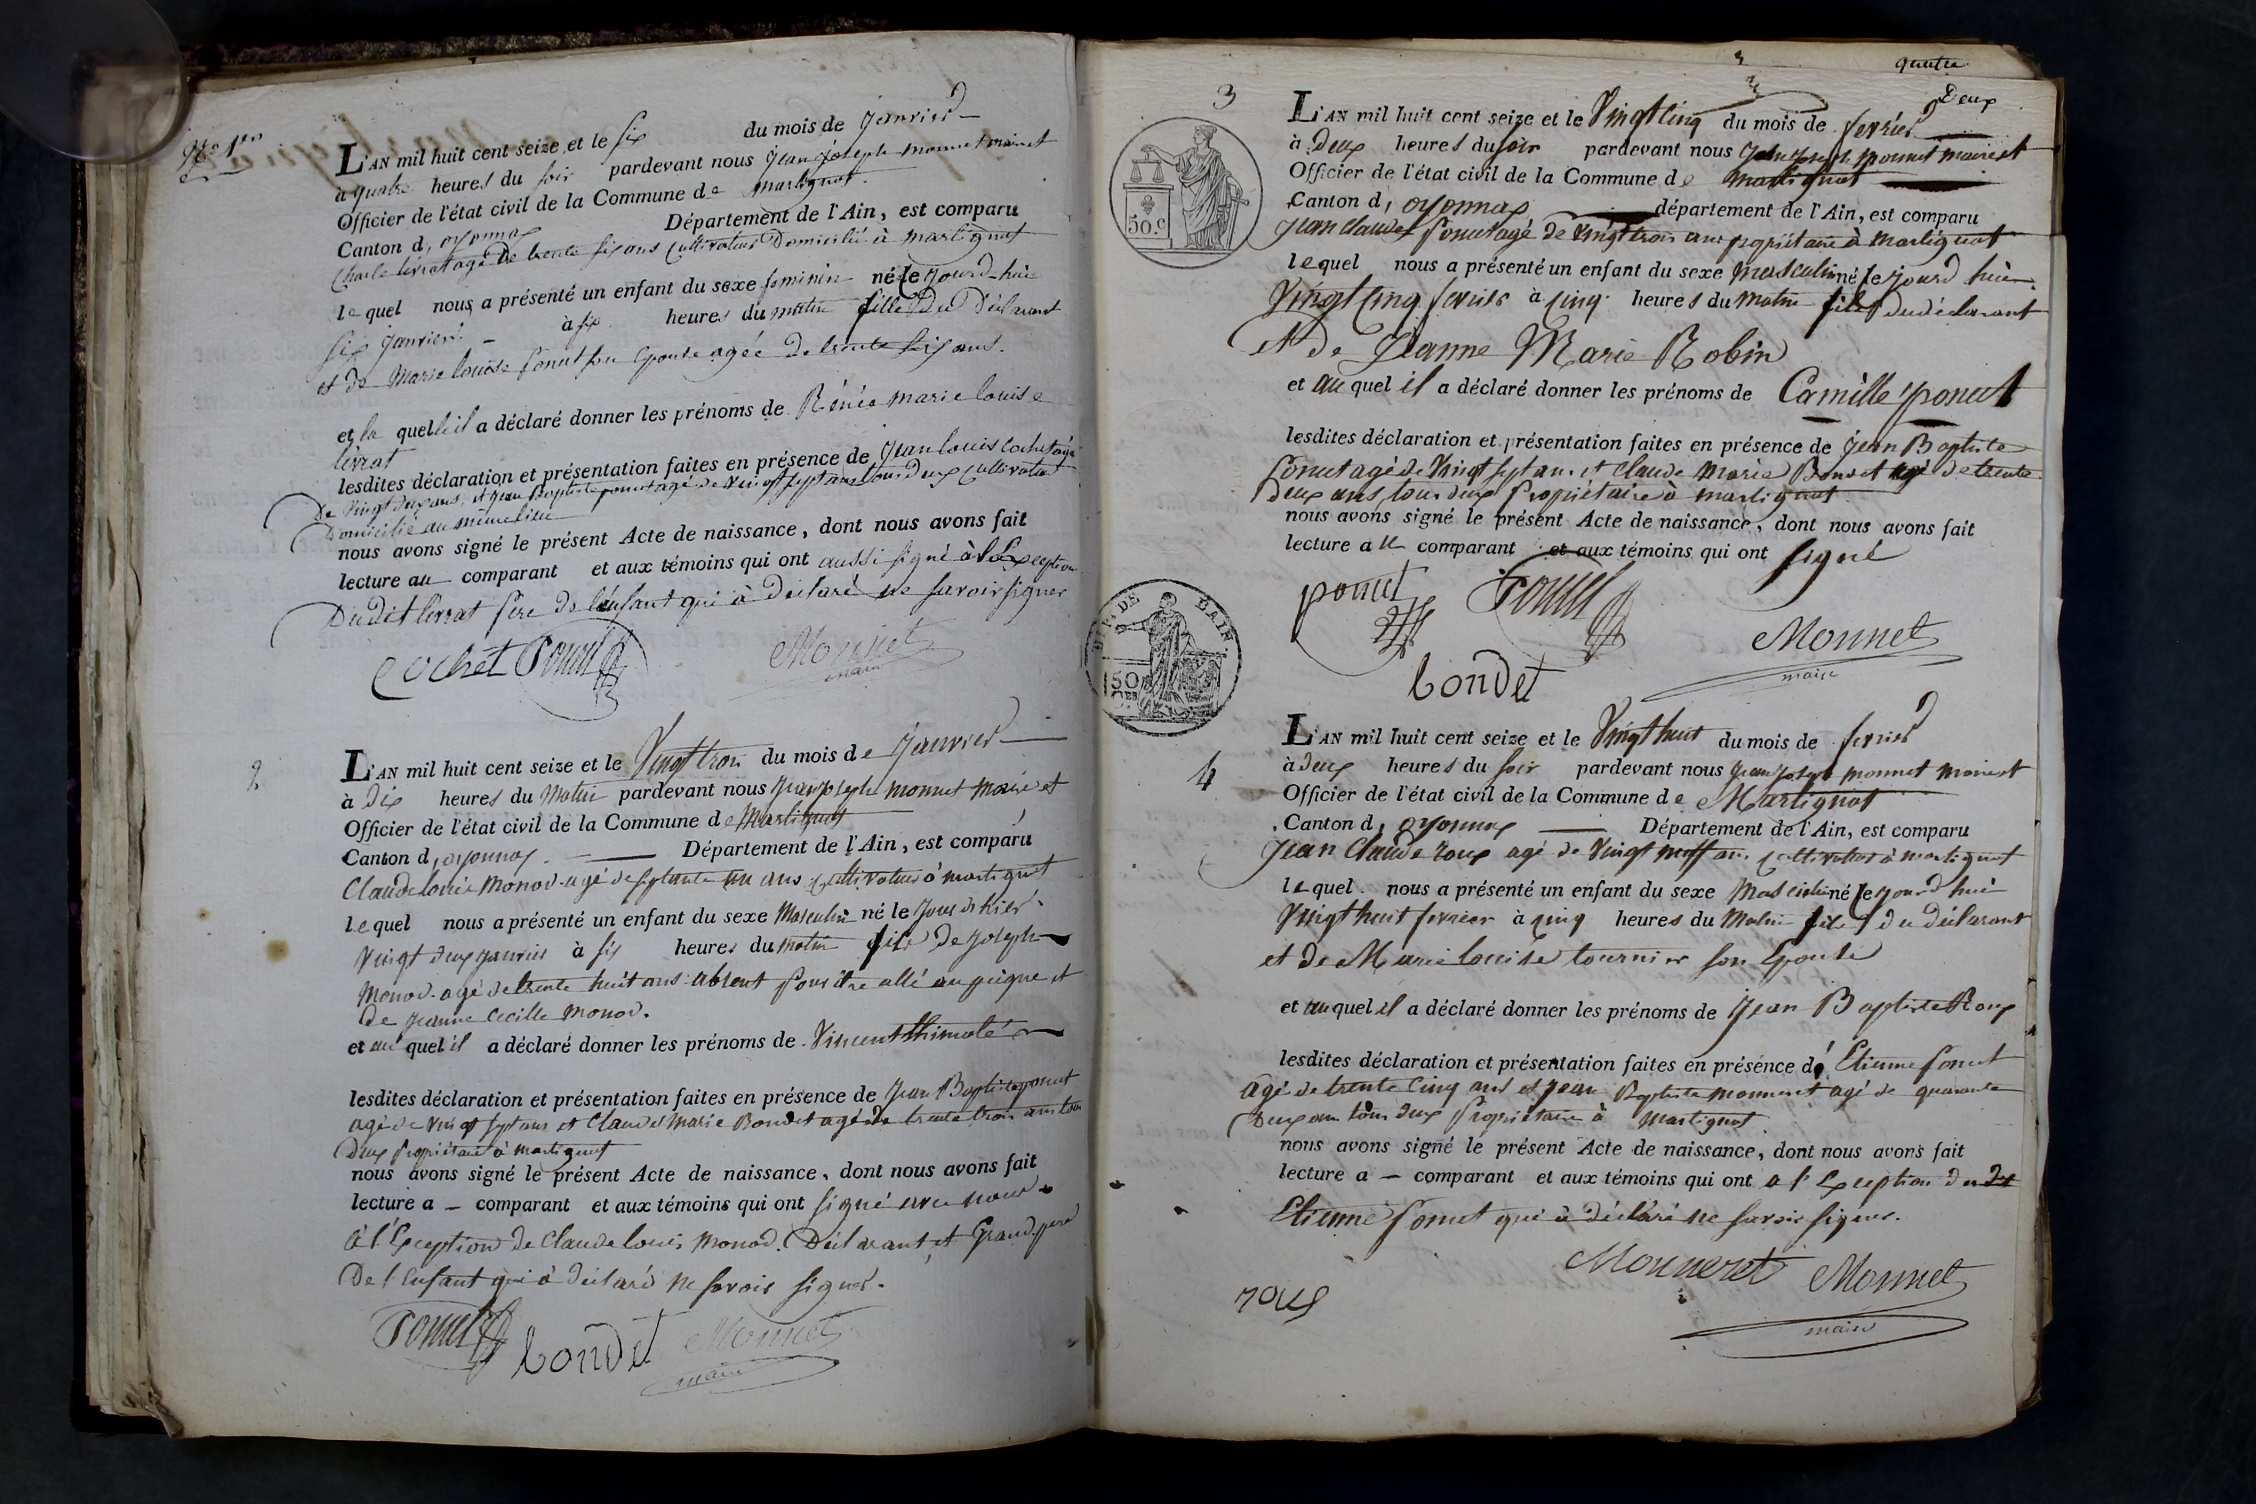 No 1er
L'AN mil huit cent seize et le six du mois de janvier
à quatre heures du soir pardevant nous jean joseph monnet maire et
Officier de l'état civil de la Commune de martignat.
Canton d, oyonnax Département de l'Ain, est comparu
Charle livrat agé de trente six ans cultivateur Domicilié à martignat
lequel nous a présenté un enfant du sexe feminin né le jourd-hui
six janvier à six heures du matin fille du Déclarant
et de Marie louise ponut son épouse agée de trente six ans.
et la quelle il a déclaré donner les prénoms de Rénée marie louise
livrat
lesdites déclaration et présentation faites en présence de jean louis cochet agé
De vingt deux ans, et jean Baptiste ponut agé de vingt sept ans tous deux cultivateur
Domicilié au même lieu
nous avons signé le présent Acte de naissance, dont nous avons fait
lecture au comparant et aux témoins qui ont aussi signé à l'exception
Dudit livrat père de l'enfant qui à déclaré ne savoir signer
cochet Ponut Monnet
maire
2
L'AN mil huit cent seize et le Vingt trois du mois de janvier
à dix heures du matin pardevant nous jean joseph monnet maire et
Officier de l'état civil de la Commune de Martignat
Canton d, oyonnax Département de l'Ain, est comparu
Claude louis Monod agé de septante un ans cultivateur à martignat
lequel nous a présenté un enfant du sexe Masculin né le jour d'hier
vingt deux janvier à six heures du matin fils de joseph
Monod agé de trente huit ans absent pour être allé au peigne et
de jeanne Cecille monod.
et au quel il a déclaré donner les prénoms de Vincent thimoté
lesdites déclaration et présentation faites en présence de jean Baptiste ponut
agé de vingt sept ans et Claude Marie Bondet agé de trente trois ans tous
Deux propriétaire à martignat
nous avons signé le présent Acte de naissance, dont nous avons fait
lecture a – comparant et aux témoins qui ont signé avec nous
à l'Exception de Claude louis Monod. Déclarant et Grand père
De l'enfant qui à déclaré ne savoir signer.
Ponut bondet Monnet
maire
quatre
Deux
3
L'AN mil huit cent seize et le Vingt cinq du mois de fevrier
à Deux heures du soir pardevant nous jean joseph monnet maire et
Officier de l'état civil de la Commune de Martignat
Canton d, oyonnax département de l'Ain, est comparu
50.c
jean claude ponut agé de vingt trois ans propriétaire à Martignat
lequel nous a présenté un enfant du sexe masculin né le jourd huï
Vingt cinq fevrier à cinq heures du matin fils du déclarant
et de Jeanne Marie Robin
et au quel il a déclaré donner les prénoms de Camille ponut
lesdites déclaration et présentation faites en présence de jean Baptiste
ponut agé de vingt sept ans et claude Marie Bondet agé de trente
Deux ans tous deux propriétaire à martignat
nous avons signé le présent Acte de naissance, dont nous avons fait
lecture au comparant et aux témoins qui ont signé
ponut Ponut
Monnet
maire
bondet
DE L'AIN.
50
4
L'AN mil huit cent seize et le Vingt huit du mois de fevrier
à deux heures du soir pardevant nous jean joseph monnet maire et
Officier de l'état civil de la Commune de Martignat
Canton d, oyonnax Département de l'Ain, est comparu
jean Claude roux agé de vingt neuf ans cultivateur à martignat
lequel nous a présenté un enfant du sexe Masculin né le jourd huï
Vingt huit fevrier à cinq heures du Matin fils du déclarant
et de Marie louise tournier son épouse
et au quel il a déclaré donner les prénoms de jean Baptiste Roux
lesdites déclaration et présentation faites en présence de Etienne ponut
agé de trente cinq ans et jean Baptiste monneret agé de quarante
Deux ans tous deux propriétaire à Martignat
nous avons signé le présent Acte de naissance, dont nous avons fait
lecture a – comparant et aux témoins qui ont a l'Exception du dt
Etienne ponut qui à déclaré ne savoir signer.
Monneret Monnet
maire
roux